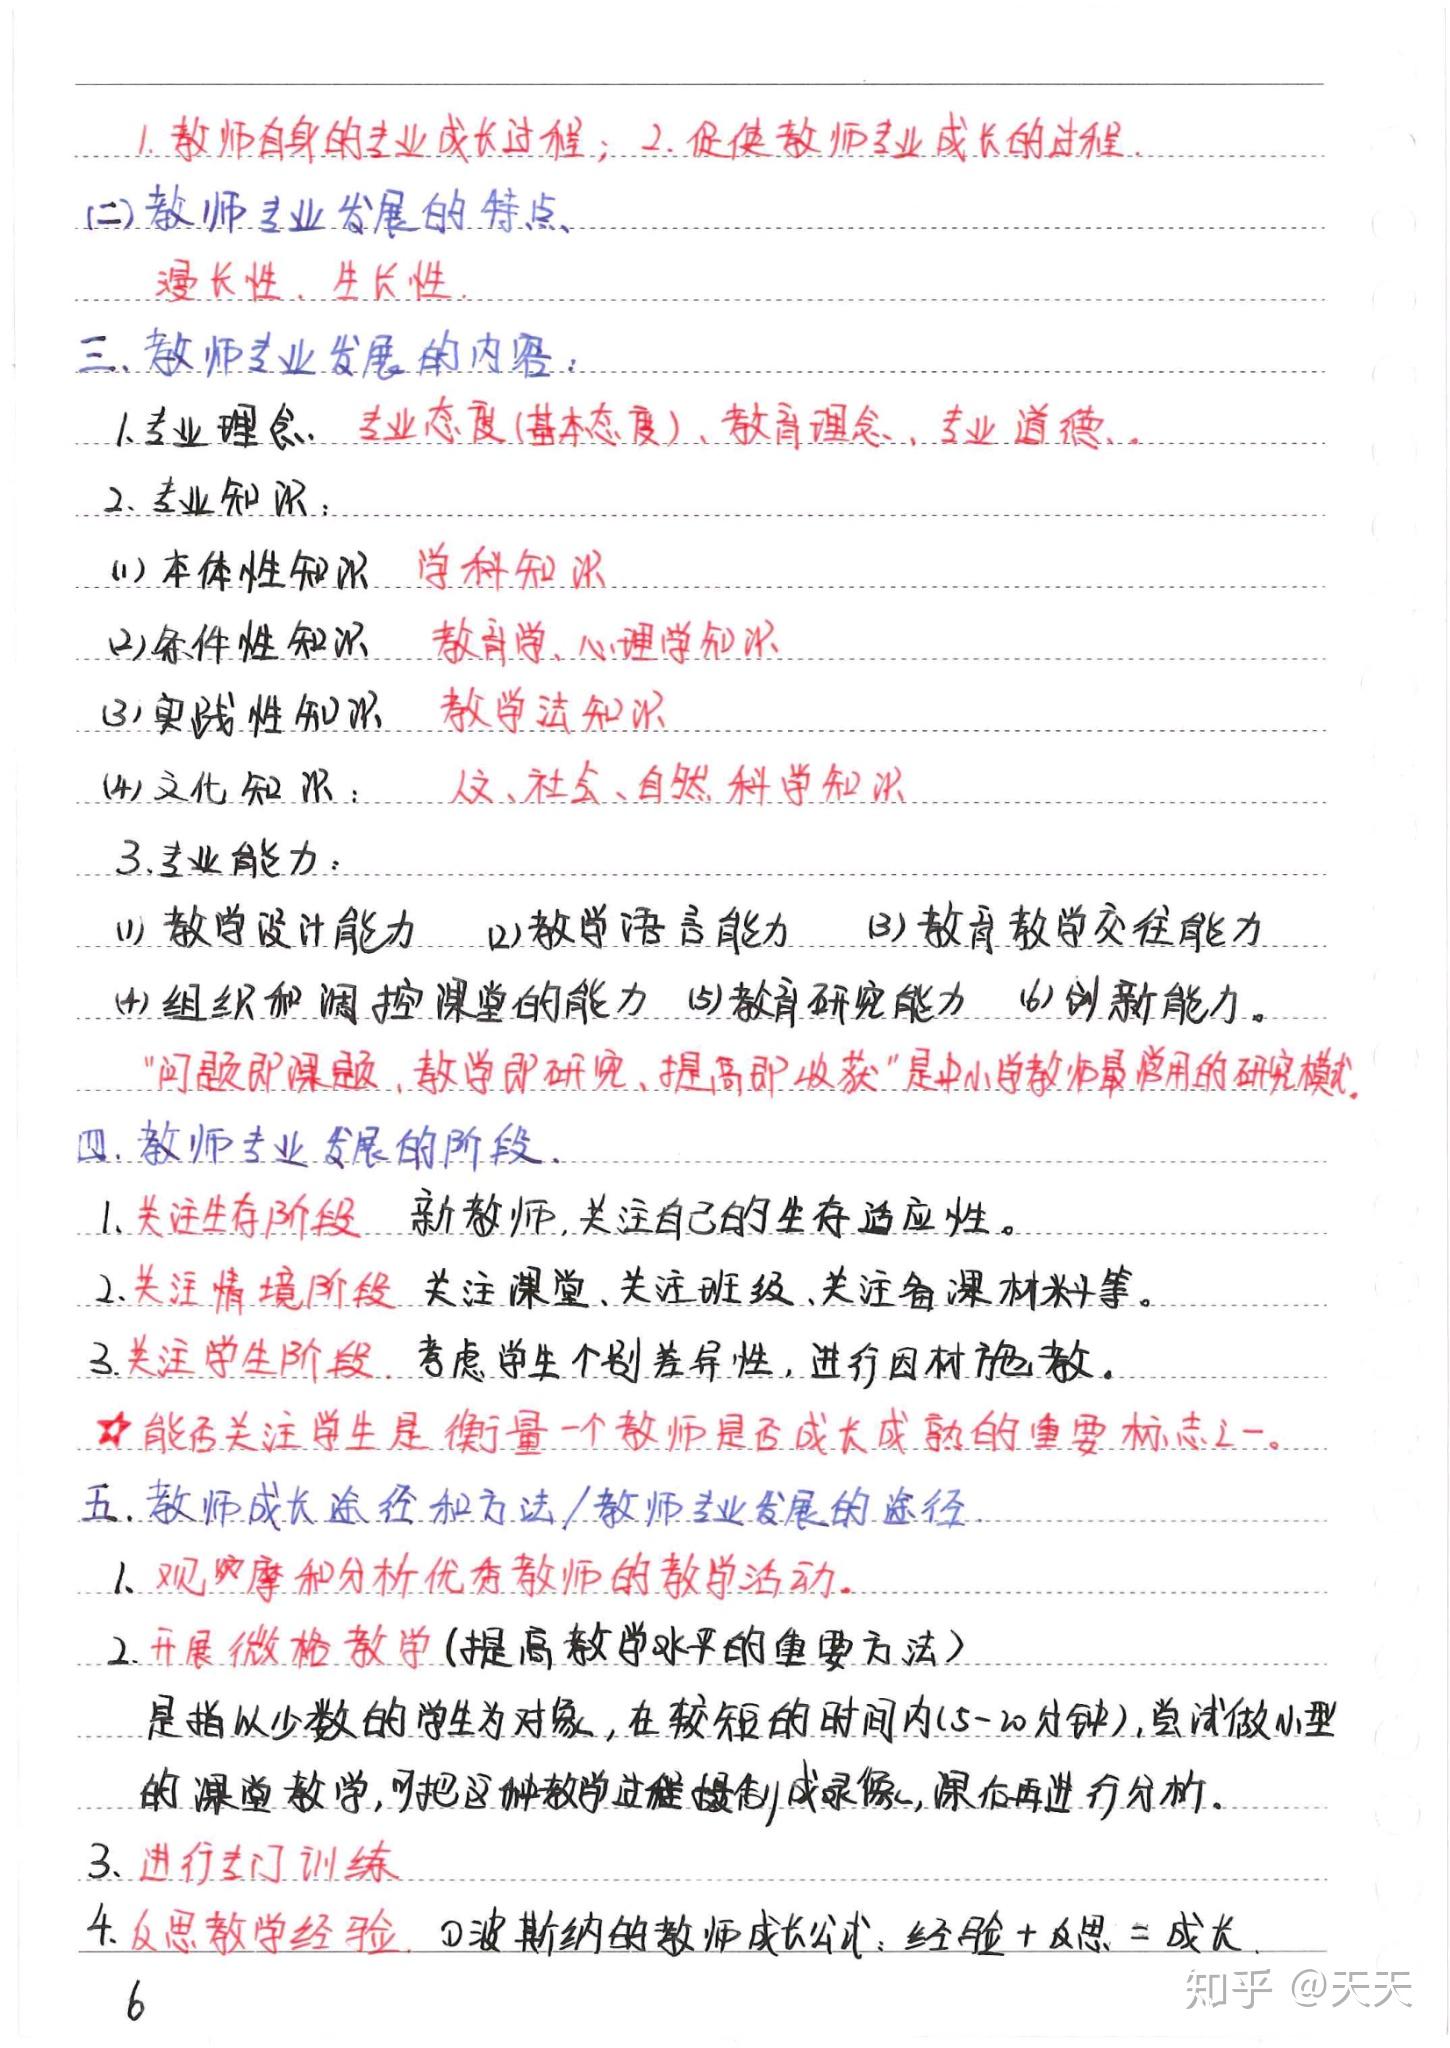 1. 教师自身的专业成长过程；2. 促使教师专业成长的过程.
(二)教师专业发展的特点、
漫长性、生长性.
三、教师专业发展的内容：
1.专业理念、专业态度(基本态度)、教育理念、专业道德、.
2.专业知识：
(1)本体性知识 学科知识
(2)条件性知识 教育学、心理学知识
(3)实践性知识 教学法知识
(4)文化知识： 人文、社会、自然科学知识
3.专业能力：
(1)教学设计能力 (2)教学语言能力 (3)教育教学交往能力
(4)组织和调控课堂的能力 (5)教育研究能力 (6)创新能力。
“问题即课题、教学即研究、提高即收获”是中小学教师最常用的研究模式。
四.教师专业发展的阶段.
1.关注生存阶段 新教师,关注自己的生存适应性。
2.关注情境阶段 关注课堂、关注班级、关注备课材料等。
3.关注学生阶段. 考虑学生个别差异性,进行因材施教。
☆能否关注学生是衡量一个教师是否成长成熟的重要标志之一。
五.教师成长途径和方法/教师专业发展的途径.
1. 观摩和分析优秀教师的教学活动。
2.开展微格教学(提高教学水平的重要方法)
是指以少数的学生为对象,在较短的时间内(5-20分钟),尝试做小型
的课堂教学,可把这种教学过程摄制成录像,课后再进行分析。
3、进行专门训练
4.反思教学经验. ①波斯纳的教师成长公式：经验+反思=成长.
6
知乎 @天天